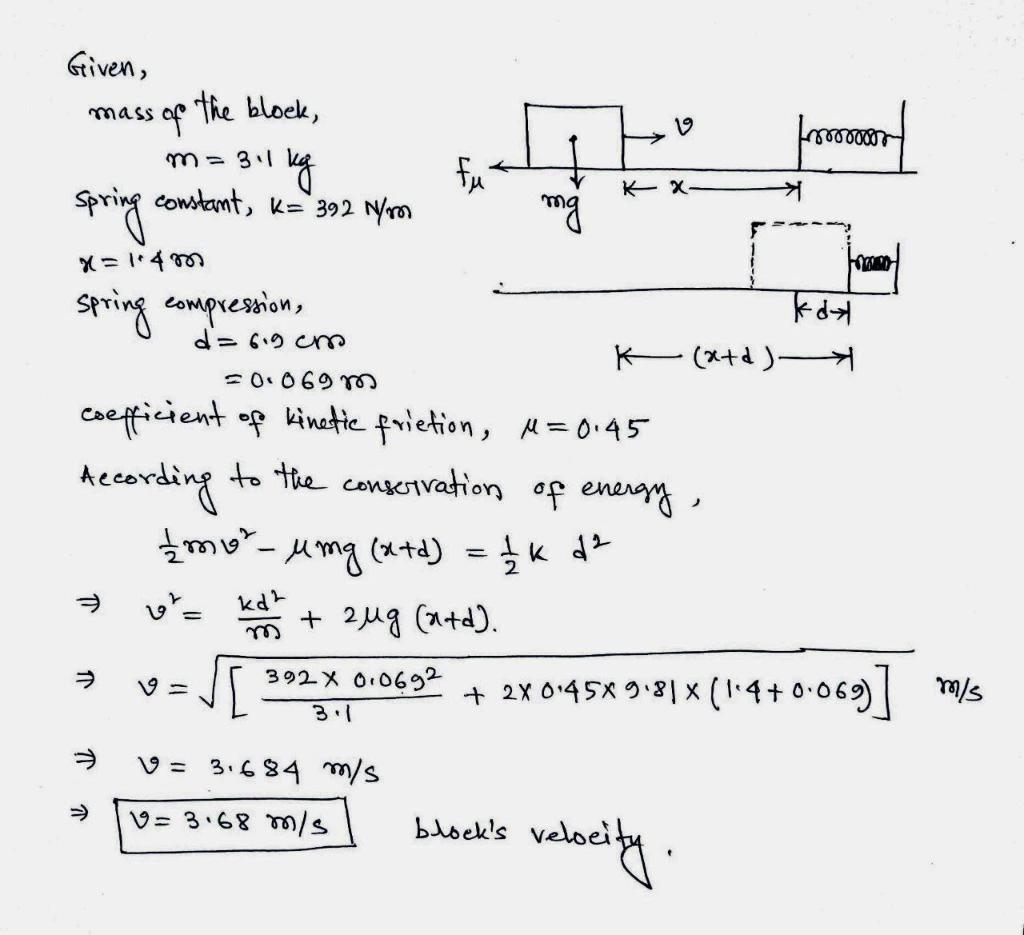 Given,
mass of the block,
m = 3.1 kg
spring constant, K = 392 N/m
x = 1.4 m
spring compression,
d = 6.9 cm
= 0.069 m
coefficient of kinetic friction, μ = 0.45
fμ
mg
v
x
d
(x+d)
According to the conservation of energy,
½mv² - μmg (x+d) = ½ K d²
⇒ v² = kd²/m + 2μg (x+d).
⇒ v = √[392 × 0.069²/3.1 + 2×0.45×9.81×(1.4+0.069)] m/s
⇒ v = 3.684 m/s
⇒ v = 3.68 m/s block's velocity.